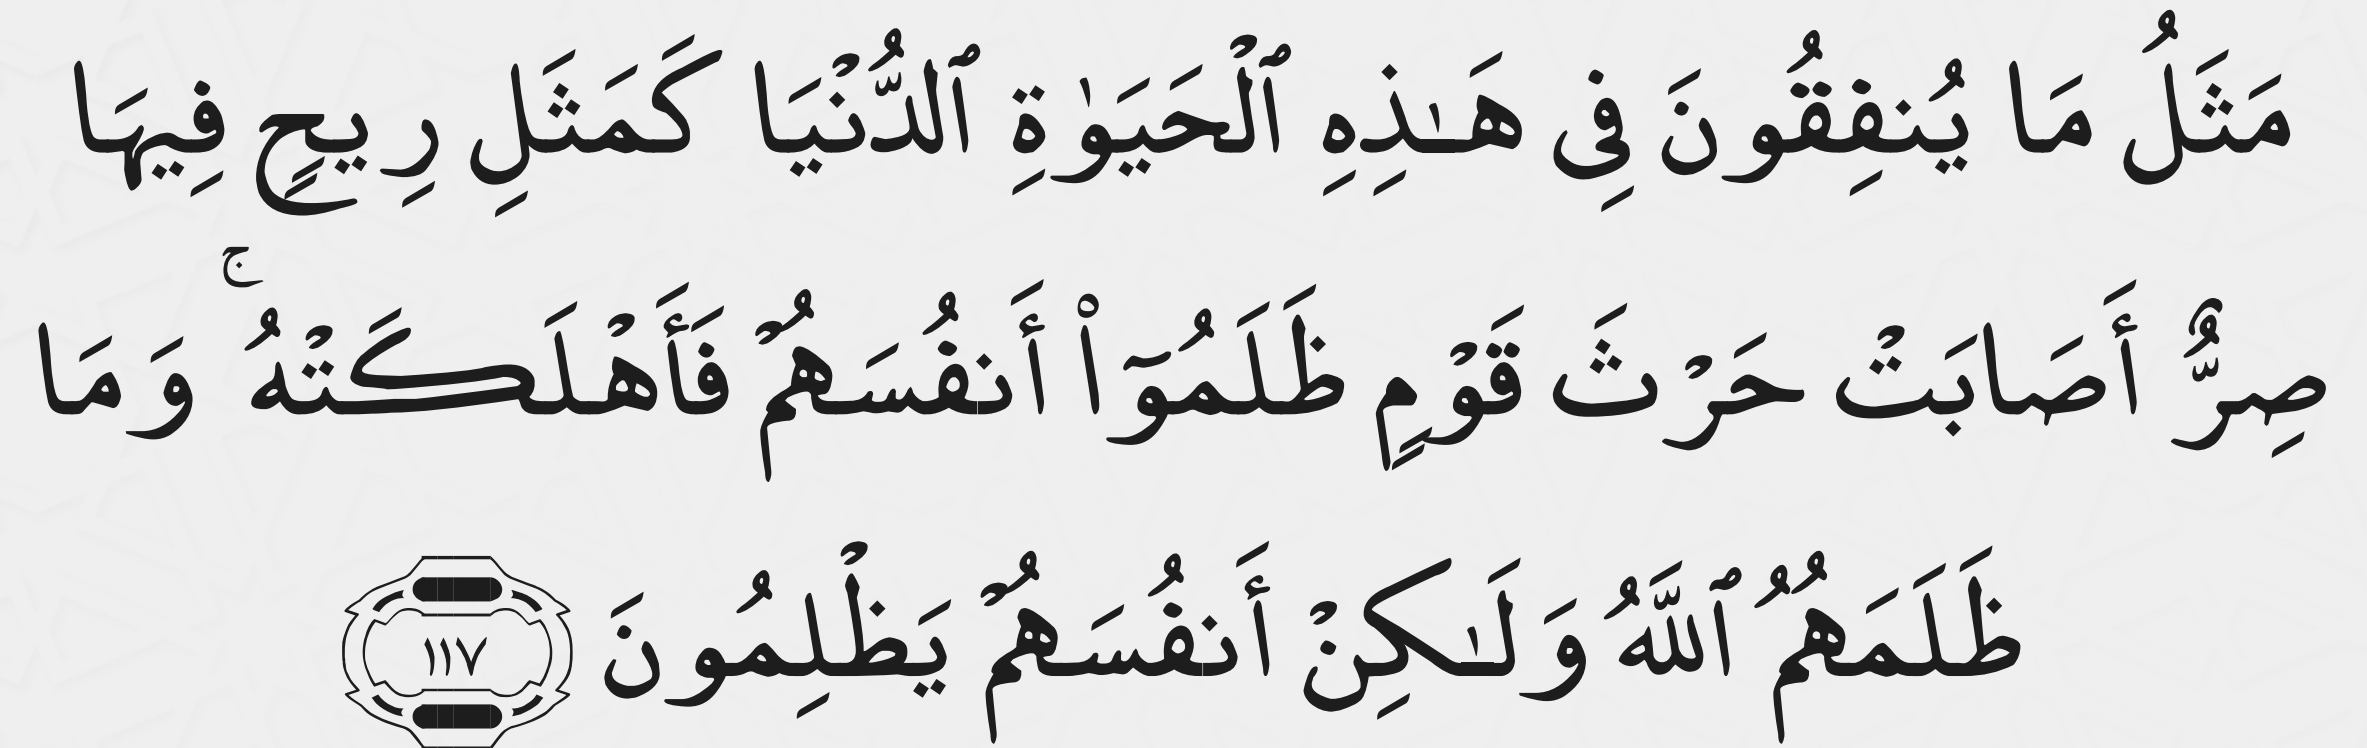 مَثَلُ مَا يُنفِقُونَ فِى هَـٰذِهِ ٱلْحَيَوٰةِ ٱلدُّنْيَا كَمَثَلِ رِيحٍ فِيهَا
صِرٌّ أَصَابَتْ حَرْثَ قَوْمٍ ظَلَمُوٓا۟ أَنفُسَهُمْ فَأَهْلَكَتْهُ ۚ وَمَا
ظَلَمَهُمُ ٱللَّهُ وَلَـٰكِنْ أَنفُسَهُمْ يَظْلِمُونَ ١١٧